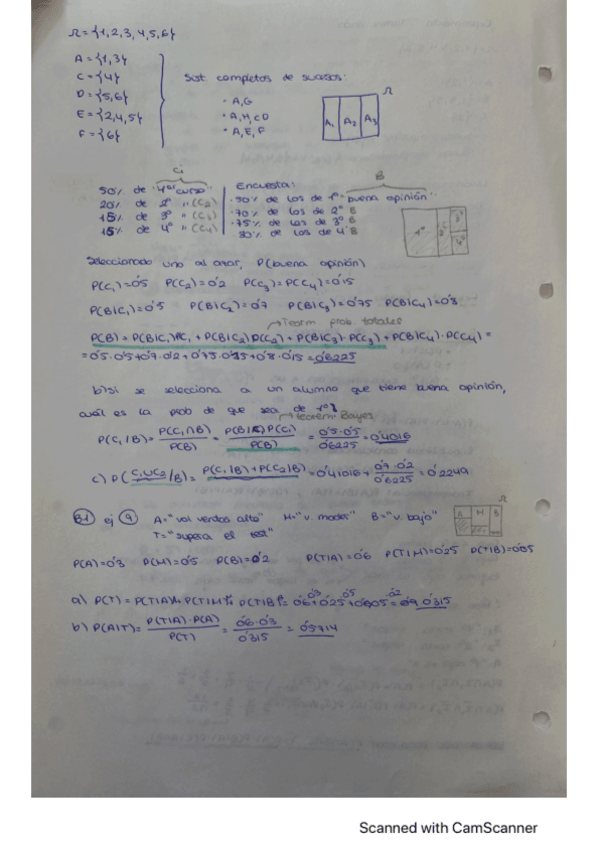 Ω = {1, 2, 3, 4, 5, 6}
A = {1, 3}
C = {4}
D = {5, 6}
E = {2, 4, 5}
F = {6}
Sist completos de sucesos:
· A, G
· A, H, C D
· A, E, F
Ω
A₁ A₂ A₃
C₁
50% de "4º curso"
20% de 2º " (C₂)
15% de 3º " (C₃)
15% de 4º " (C₄)
Encuesta:
B
· 50% de los de 1º "buena opinión"
· 70% de los de 2º B
· 75% de los de 3º B
80% de los de 4º B
1º 2º 3º 4º
Seleccionado uno al azar, P(buena opinión)
P(C₁)=0'5 P(C₂)=0'2 P(C₃)=P(C₄)=0'15
P(B|C₁)=0'5 P(B|C₂)=0'7 P(B|C₃)=0'75 P(B|C₄)=0'8
→ Teorm prob totales
P(B) = P(B|C₁)P(C₁ + P(B|C₂)P(C₂) + P(B|C₃)·P(C₃) + P(B|C₄)·P(C₄) =
= 0'5·0'5+0'7·0'2+0'75·0'15+0'8·0'15=0'6225
b) Si se selecciona a un alumno que tiene buena opinión,
cuál es la prob de que sea de 1º?
→ Teorem Bayes
P(C₁|B)= P(C₁∩B)/P(B) = P(B|C₁)P(C₁)/P(B) = 0'5·0'5/0'6225 = 0'4016
c) P(C₁∪C₂/B)= P(C₁|B)+P(C₂|B)=0'41016+ 0'7·0'2/0'6225 = 0'2249
B1 ej 9 A="val ventas alto" M="v. moder" B="v. bajo"
T="supera el test"
Ω
A M B
P(A)=0'3 P(M)=0'5 P(B)=0'2 P(T|A)=0'6 P(T|M)=0'25 P(T|B)=0'05
0'3 0'5 0'2
a) P(T) = P(T|A)+ P(T|M)+ P(T|B)= 0'6+0'25+0'05= 0'315
b) P(A|T)= P(T|A)·P(A)/P(T) = 0'6·0'3/0'315 = 0'5714
Scanned with CamScanner